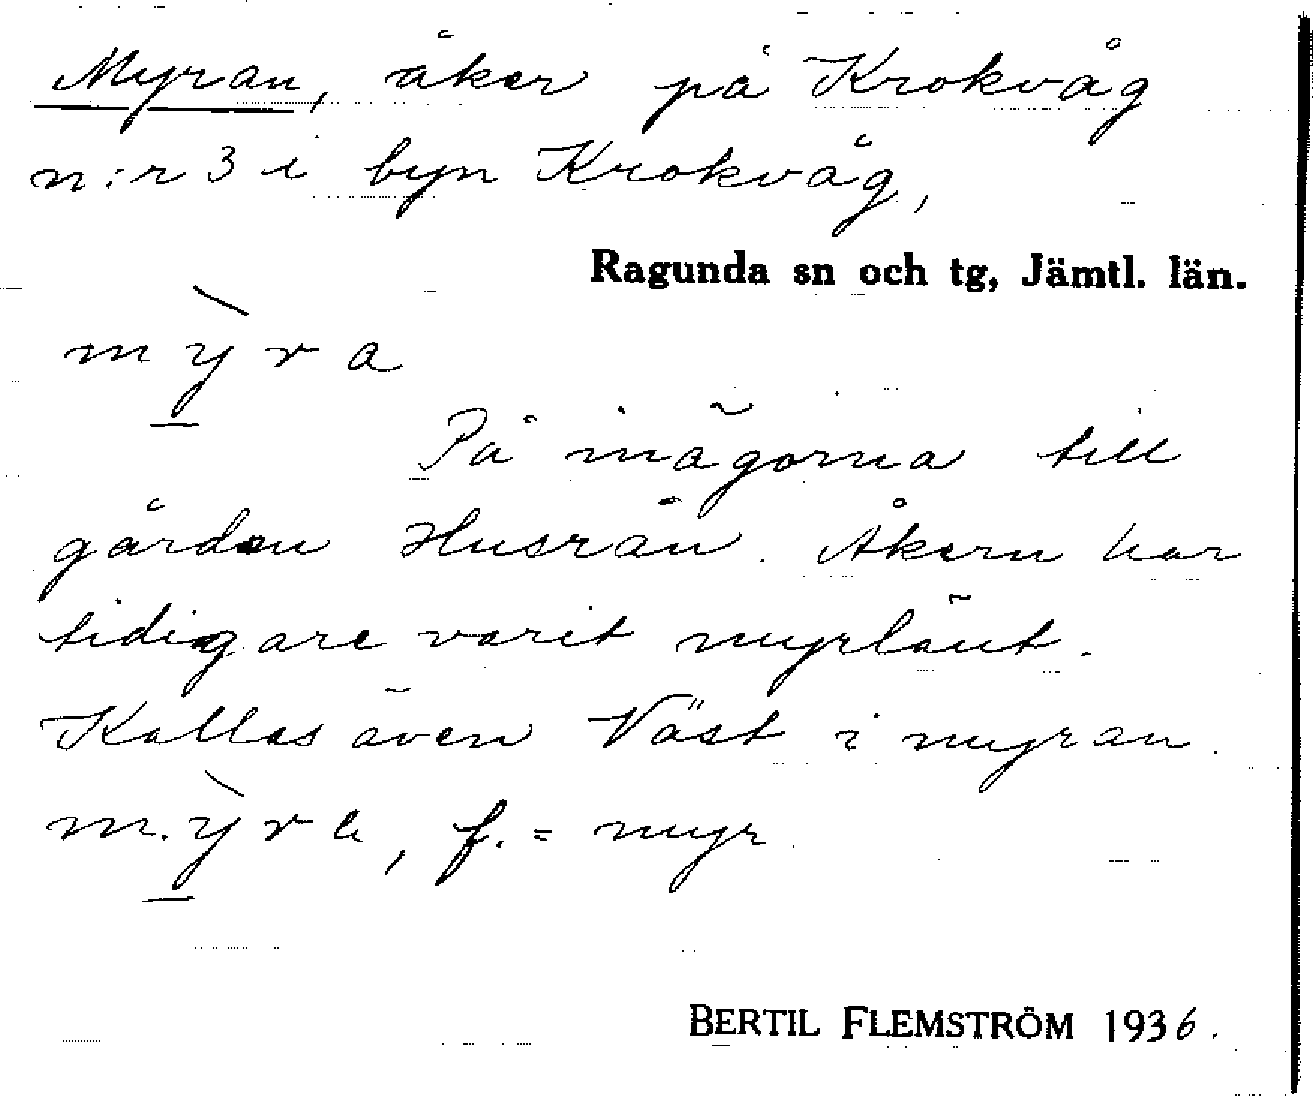 Myran, åker på Krokvåg
n:r 3 i byn Krokvåg,
Ragunda sn och tg, Jämtl. län.
mỳ̠ra
På inägorna till
gården Husrån. Åkern har
tidigare varit myrlänt.
Kallas även Väst i myran.
mỳ̠ra, f. = myr
BERTIL FLEMSTRÖM 1936.